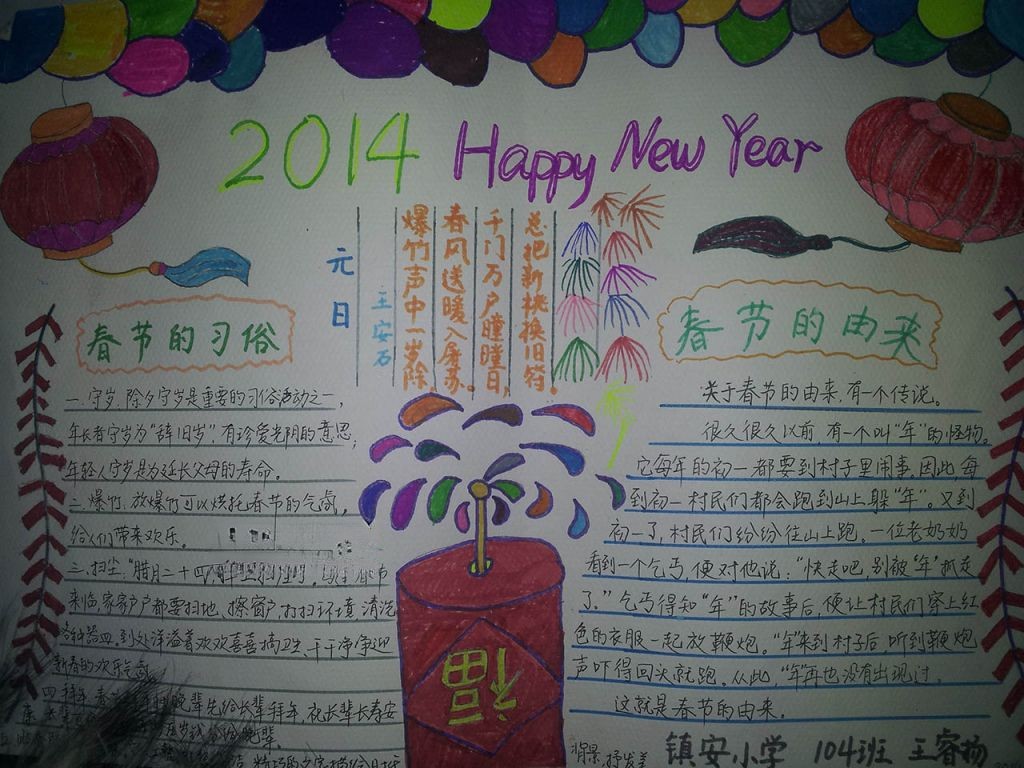 2014 Happy New Year
元日
王安石
爆竹声中一岁除
春风送暖入屠苏。
千门万户瞳瞳日,
总把新桃换旧符。
春节的习俗
一.守岁.除夕守岁是重要的习俗活动之一,
年长者守岁为“辞旧岁”,有珍爱光阴的意思;
年轻人守岁是为延长父母的寿命。
二.爆竹.放爆竹可以烘托春节的气氛,
给人们带来欢乐。
三.扫尘:“腊月二十四
春节
来临,家家户户都要扫地、擦窗户,打扫环境,清洗
到处洋溢着欢欢喜喜搞卫生、干干净净迎
新春的欢乐气氛
四.拜年
晚辈先给长辈拜年,祝长辈长寿安
春节的由来
关于春节的由来,有一个传说。
很久很久以前,有一个叫“年”的怪物。
它每年的初一都要到村子里闹事。因此每
到初一村民们都会跑到山上躲“年”。又到
初一了,村民们纷纷往山上跑。一位老奶奶
看到一个乞丐,便对他说:“快走吧,别被“年”抓走
了。”乞丐得知“年”的故事后,便让村民们穿上红
色的衣服一起放鞭炮。“年”来到村子后,听到鞭炮
声吓得回头就跑。从此,“年”再也没有出现过。
这就是春节的由来。
福
镇安小学 104班 王睿扬